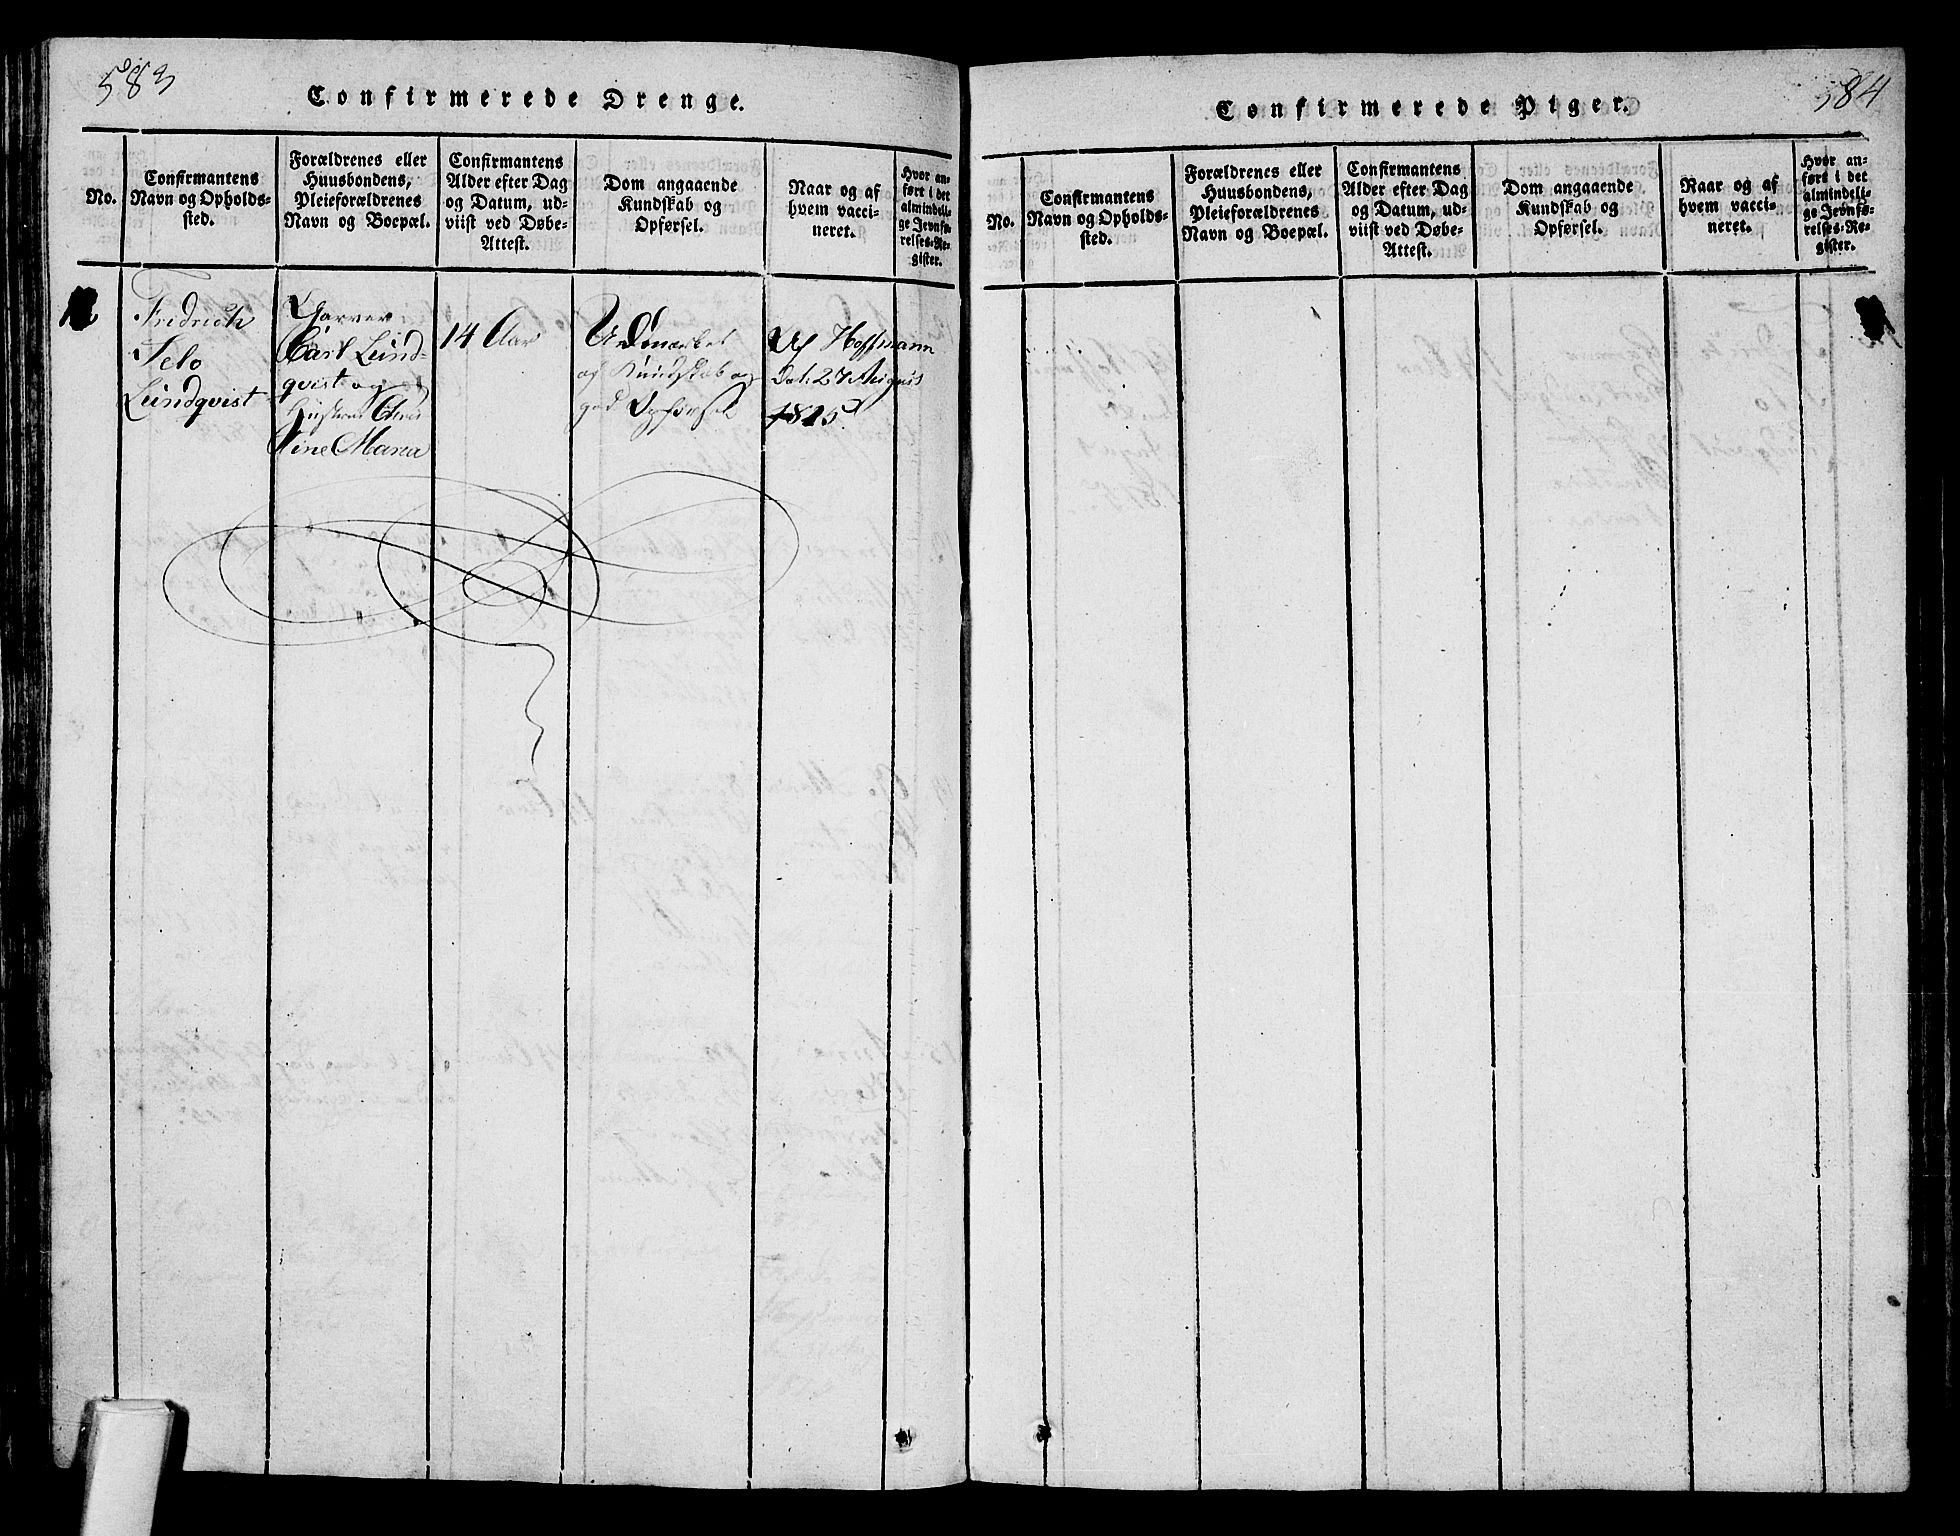 583
Confirmerede Drenge.
No.
Confirmantens
Navn og Opholds-
sted.
Forældrenes eller
Huusbondens,
Pleieforældrenes
Navn og Boepæl.
Confirmantens
Alder efter Dag
og Datum, ud-
viist ved Døbe-
Attest.
Dom angaaende
Kundskab og
Opførsel.
Naar og af
hvem vacci-
neret.
Hvor an-
ført i det
almindeli-
ge Jevnfø-
relses-Re-
gister.
Fridrich
Selo
Lundqvist
Garver
Carl Lund-
qvist og
Hustrue Chris
tine Maria
14 Aar
Udmærket
og Kundskab og
god Opførsel
Af Hoffmann
Dat. 27 August
1815
584
Confirmerede Piger.
No.
Confirmantens
Navn og Opholds-
sted.
Forældrenes eller
Huusbondens,
Pleieforældrenes
Navn og Boepæl.
Confirmantens
Alder efter Dag
og Datum, ud-
viist ved Døbe-
Attest.
Dom angaaende
Kundskab og
Opførsel.
Naar og af
hvem vacci-
neret.
Hvor an-
ført i det
almindeli-
ge Jevnfø-
relses-Re-
gister.